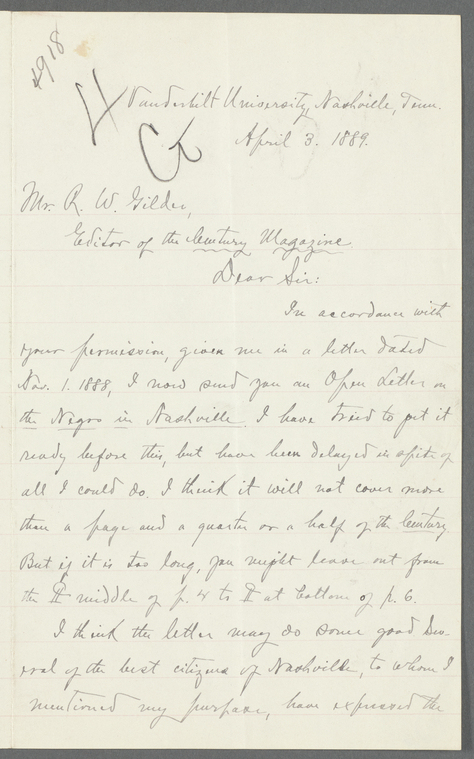 4918
Vanderbilt University, Nashville, Tenn.
April 3. 1889.
Mr. R. W. Gilder,
Editor of the Century Magazine.
Dear Sir:
In accordance with
your permission, given me in a letter dated
Nov. 1. 1888, I now send you an Open Letter on
the Negro in Nashville. I have tried to get it
ready before this, but have been delayed in spite of
all I could do. I think it will not cover more
than a page and a quarter or a half of the Century.
But if it is too long, you might leave out from
the ¶ middle of p. 4 to ¶ at bottom of p. 6.
I think the letter may do some good Sev-
eral of the best citizens of Nashville, to whom I
mentioned my purpose, have expressed the